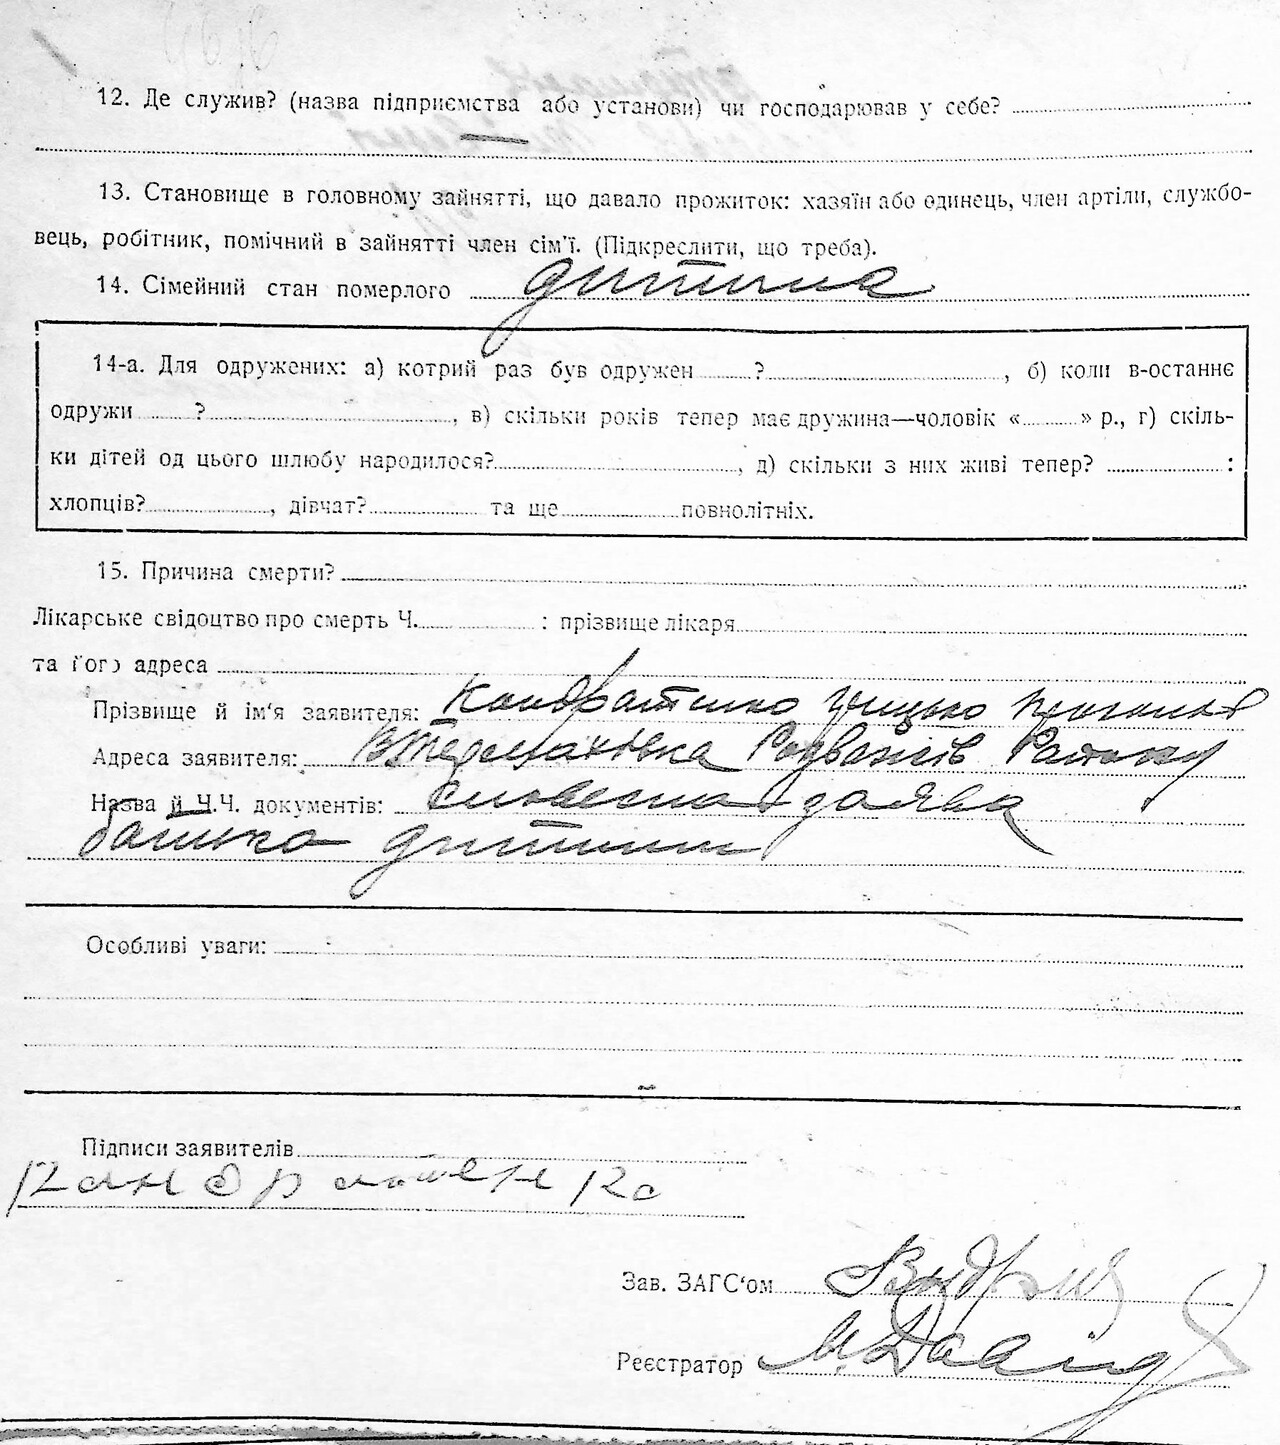 12. Де служив? (назва підприємства або установи) чи господарював у себе?
—
13. Становище в головному зайнятті, що давало прожиток: хазяїн або одинець, член артіли, службо-
вець, робітник, помічний в зайнятті член сім'ї. (Підкреслити, що треба).
14. Сімейний стан померлого дитина
14-а. Для одружених: а) котрий раз був одружен ? , б) коли в-останнє
одружи ? , в) скільки років тепер має дружина—чоловік « » р., г) скіль-
ки дітей од цього шлюбу народилося? , д) скільки з них живі тепер? :
хлопців? , дівчат? та ще повнолітніх.
15. Причина смерти?
Лікарське свідоцтво про смерть Ч. : прізвище лікаря
та його адреса
Прізвище й ім'я заявителя: Кондратенко Грицько
Адреса заявителя: Термахівка Розважів Району
Назва й Ч.Ч. документів: словесна заява
батька дитини
Особливі уваги:
Підписи заявителів
Кандратенко
Зав. ЗАГС'ом
Реєстратор